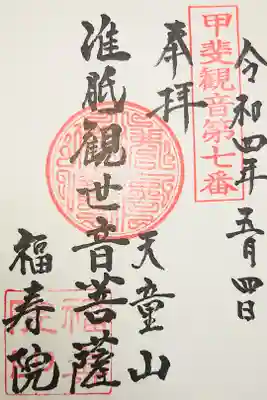 甲斐観音第七番
令和四年 五月四日
奉拝
准胝観世音菩薩
天童山
福寿院